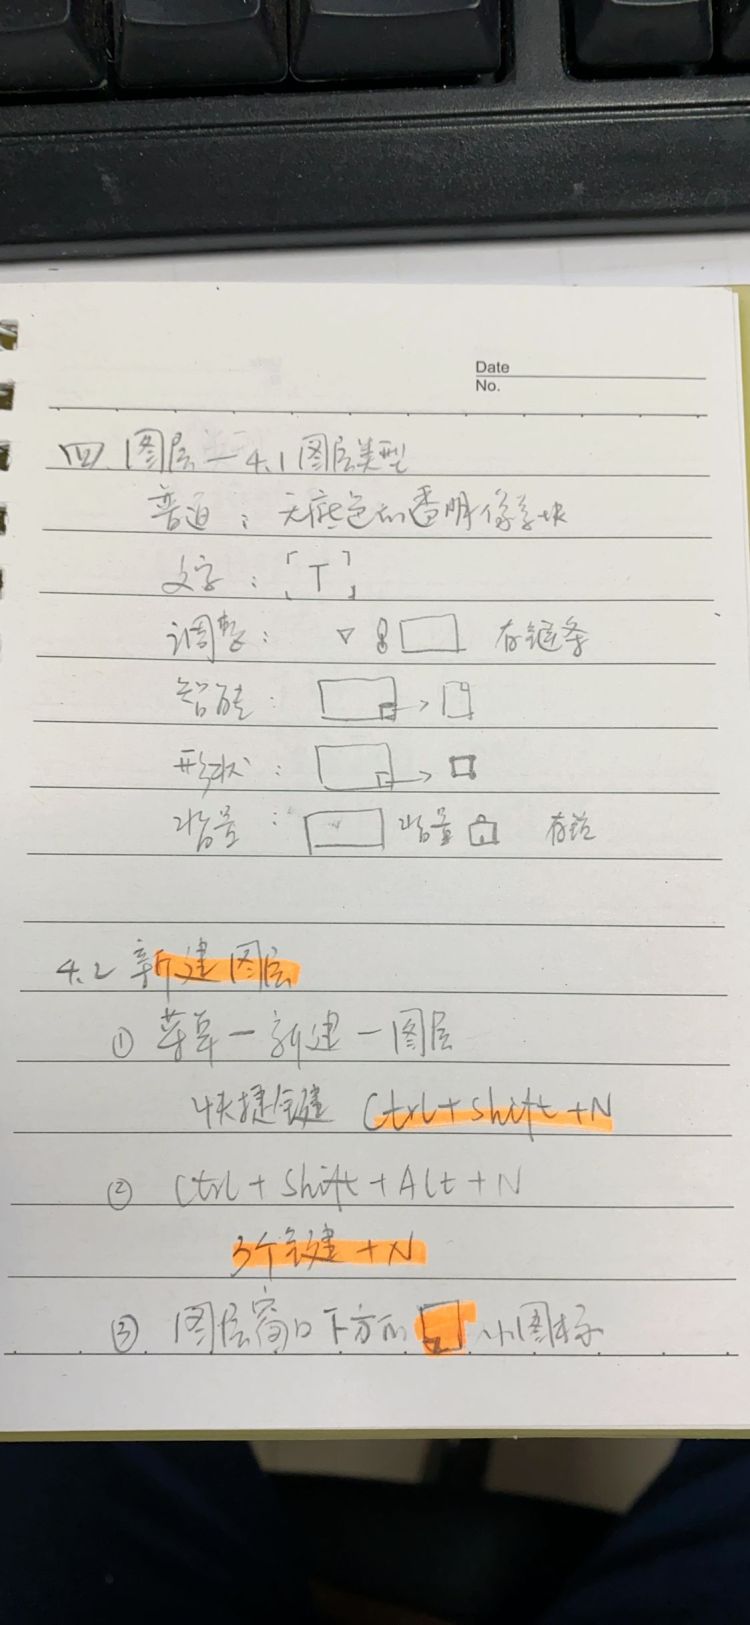 Date
No.
四、图层—4.1图层类型
普通：无底色的透明像素块
文字：「T」
调整： 有链条
智能：
形状：
背景： 背景 有锁
4.2 新建图层
① 菜单—新建—图层
快捷键 Ctrl+Shift+N
② Ctrl+Shift+Alt+N
3个键+N
③ 图层窗口下方的 小图标